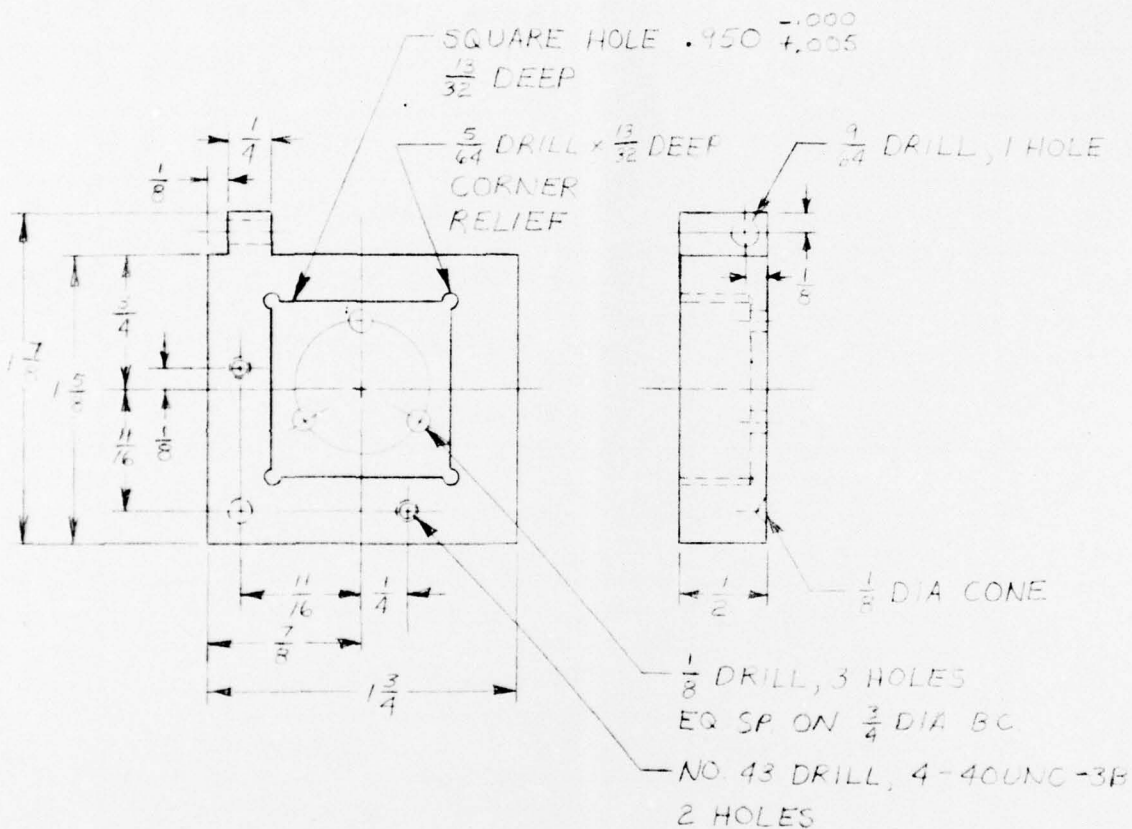 SQUARE HOLE .950 -.000 +.005
13/32 DEEP
1/4
5/64 DRILL × 13/32 DEEP
CORNER
RELIEF
9/64 DRILL, 1 HOLE
1/8
1/8
3/4
1 7/8
1 5/8
11/16
1/8
11/16
1/4
1/2
1/8 DIA CONE
7/8
1 3/4
1/8 DRILL, 3 HOLES
EQ SP. ON 3/4 DIA BC
NO. 43 DRILL, 4-40UNC-3B
2 HOLES